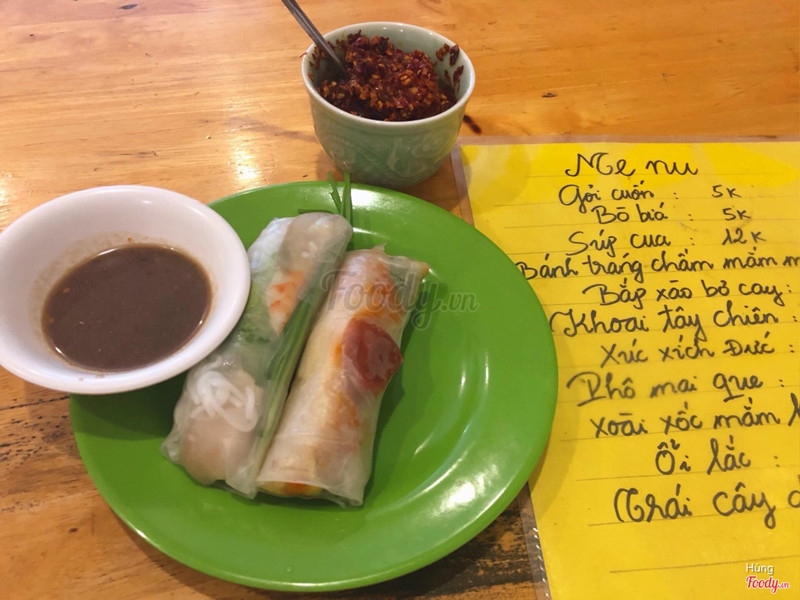 Menu
Gỏi cuốn : 5k
Bò bía : 5k
Súp cua : 12k
Bánh tráng chấm mắm
Bắp xào bò cay :
Khoai tây chiên :
Xúc xích Đức :
Phô mai que :
Xoài xốc mắm
Ổi lắc :
Trái cây
Foody.vn
Hùng
Foody.vn